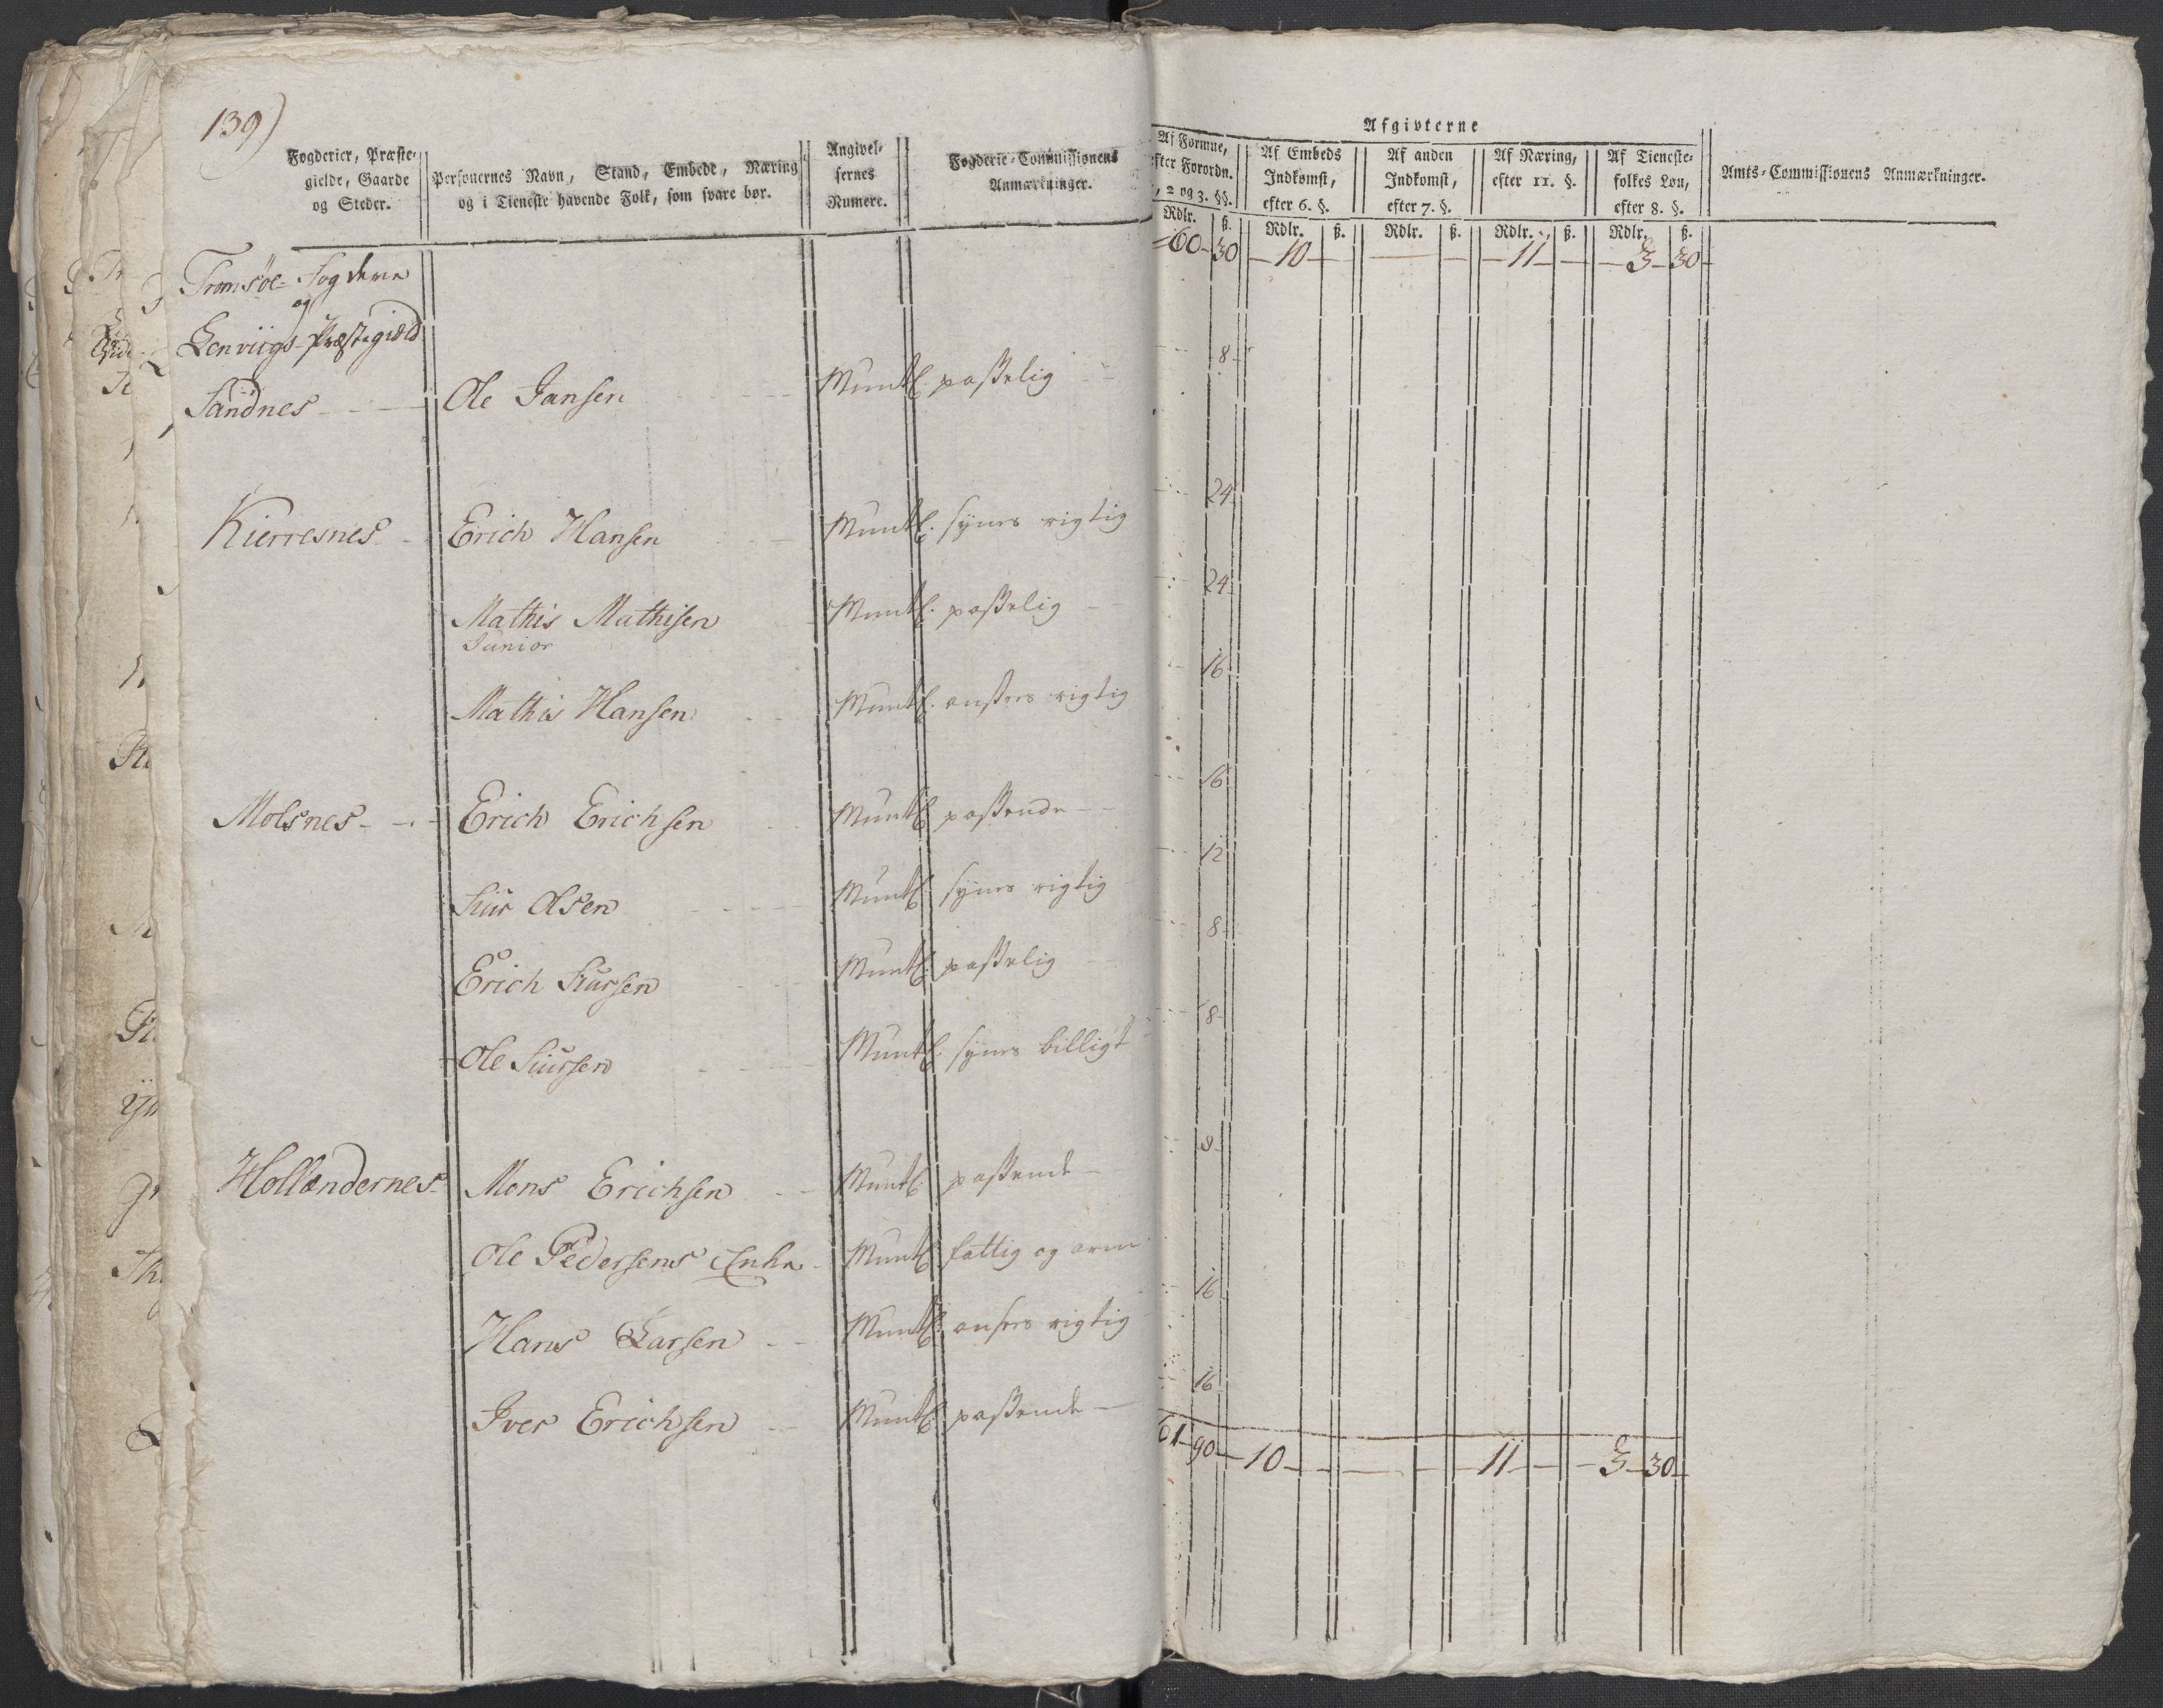 139)
Fogderier, Præste-
gielde, Gaarde
og Steder.
Personernes Navn, Stand, Embede, Næring
og i Tieneste havende Folk, som svare bør.
Angivel-
sernes
Numere.
Fogderie-Commissionens
Anmærkninger.
Afgivterne
Af Formue,
efter Forordn.
, 2 og 3. §§.
Af Embeds
Indkomst,
efter 6. §.
Af anden
Indkomst,
efter 7. §.
Af Næring,
efter 11. §.
Af Tieneste-
folkes Løn,
efter 8. §.
Amts-Commissionens Anmærkninger.
Rdlr. ß. Rdlr. ß. Rdlr. ß. Rdlr. ß. Rdlr. ß.
60 30 10 11 3 30
Tromsøe-Fogderie
og
Lenviigs-Præstegield
Sandnes Ole Jansen Muntl. passelig 8
Kierresnes Erich Hansen Muntl. synes rigtig 24
Mathis Mathisen Muntl. passelig 24
Junior
Mathis Hansen Muntl. ansees rigtig 16
Molsnes Erich Erichsen Muntl. passende 16
Siur Olsen Muntl. synes rigtig 12
Erich Siursen Muntl. passelig 8
Ole Siursen Muntl. synes billigt 8
Hollændernes Mons Erichsen Muntl. passende 8
Ole Pedersens Enke Muntl. fattig og arm
Hans Larsen Muntl. ansees rigtig 16
Iver Erichsen Muntl. passende 16
61 90 10 11 3 30